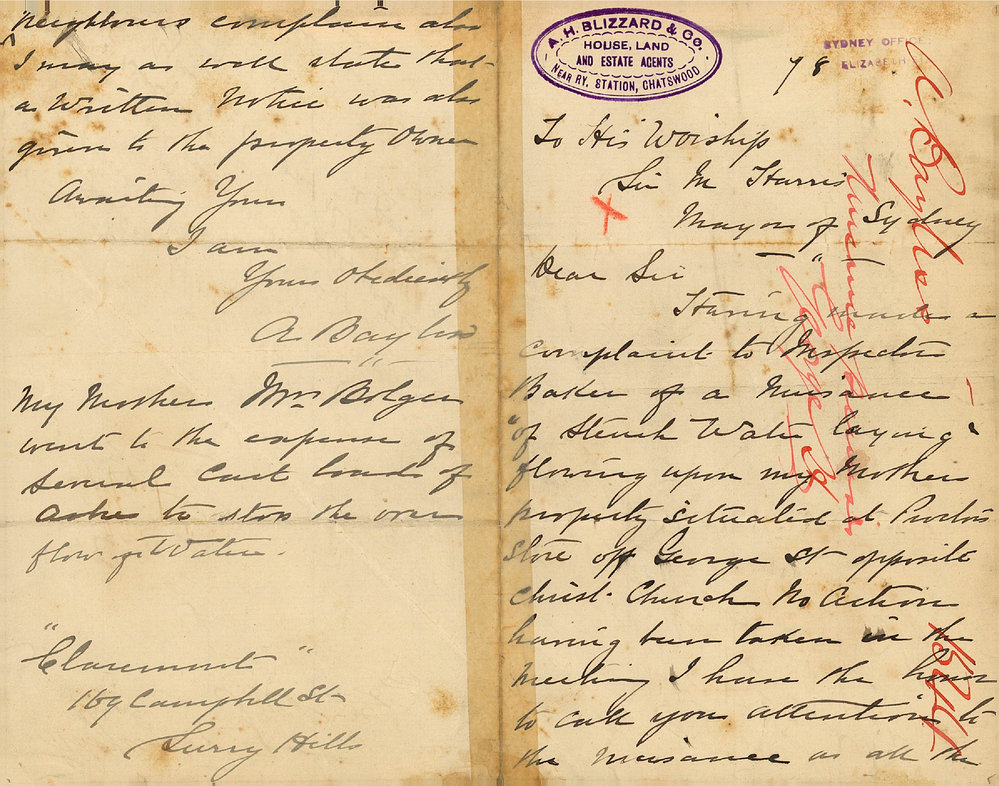 A. H. BLIZZARD & Co.
HOUSE, LAND
AND ESTATE AGENTS
NEAR RY. STATION, CHATSWOOD
SYDNEY OFFICE
ELIZABETH
7 8
To His Worship
Sir M Harris
Mayor of Sydney
Dear Sir
Having made a
complaint to Inspector
Baker of a Nuisance
"of Stench Water laying"
flowing upon my Mothers
property situated at
Store off George St opposite
Christ Church No Action
having been taken in the
Meeting I have the honor
to call your attention to
the nuisance as all the
A. Bayliss
Nuisance
George St
neighbours complain also
I may as well state that
a Written Notice was also
given to the property Owner
Awaiting Yours
I am
Yours Obediently
A Bayliss
My Mother Mrs Bolger
went to the expense of
several Cart loads of
ashes to stop the over
flow of Water.
"Claremont"
169 Campbell St
Surry Hills